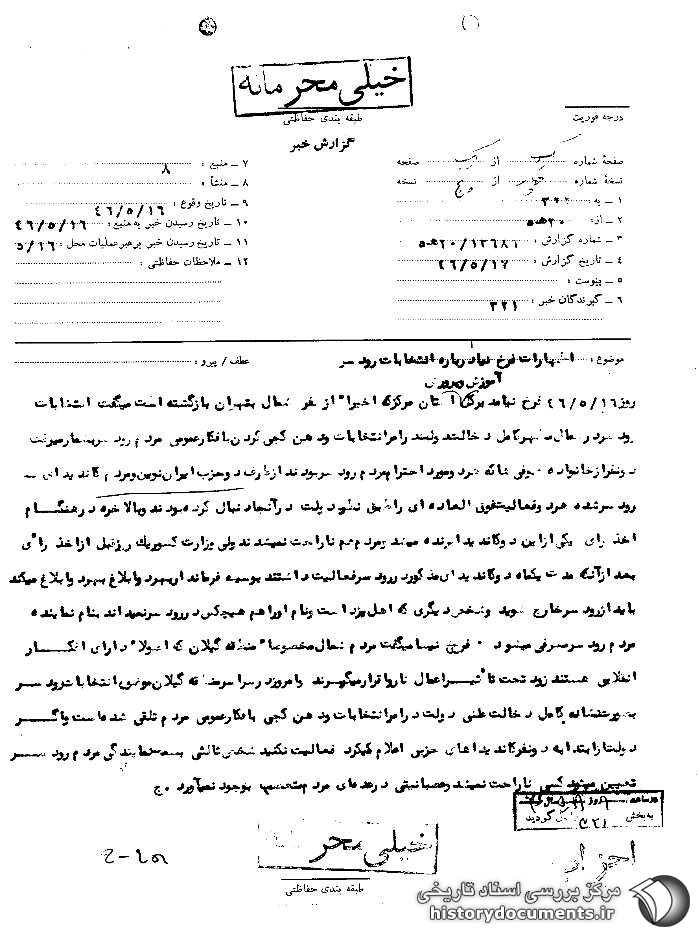 خیلی محرمانه
طبقه بندی حفاظتی
درجه فوریت
گزارش خبر
صفحهٔ شماره از صفحه
نسخهٔ شماره از نسخه
۱ ـ به : ۳۲۲
۲ ـ از: ۲۰هـ۵
۳ ـ شماره گزارش : ۵هـ۲۰/۱۲۶۸۱
۴ ـ تاریخ گزارش : ۴۶/۵/۱۷
۵ ـ پیوست :
۶ ـ گیرندگان خبر : ۳۲۱
۷ ـ منبع : ۸
۸ ـ منشأ :
۹ ـ تاریخ وقوع : ۴۶/۵/۱۶
۱۰ ـ تاریخ رسیدن خبر به منبع : ۴۶/۵/۱۶
۱۱ ـ تاریخ رسیدن خبر به رهبر عملیات محل : ۵/۱۶
۱۲ ـ ملاحظات حفاظتی :
موضوع : اظهارات فرخ نیا درباره انتخابات رودسر
عطف / پیرو :
آموزش وپرورش
روز ۴۶/۵/۱۶ فرخ نیا استان مرکز که اخیرا" از سفر شمال بتهران بازگشته است میگفت انتخابات
شهر کامل دخالت دولت در امر انتخابات ودهن کجی کردن بافکار عمومی مردم رودسر بشمار میرفت
دونفر از خانواده صوفی ها که هردو مورد احترام مردم رودسر بودند از طرف دوحزب ایران نوین ومردم کاندیدای
رودسر شده بودند وفعالیت فوق العاده ای را طبق نظر دولت در آنجا دنبال کرده بودند وبالاخره در هنگام
اخذ رای یکی از این دوکاندیدا برنده میشد ومردم هم ناراحت نمیشدند ولی وزارت کشور یک روز قبل از اخذ رأی
بعد از آنکه مدت یکماه دوکاندیدای مذکور در رودسر فعالیت داشتند بوسیله فرماندار بهردو ابلاغ میکند
باید از رودسر خارج شوید وشخص دیگری که اهل یزد است ونام او را هم هیچکس در رودسر نمیداند بنام نماینده
مردم رودسر معرفی میشود ۰ فرخ نیا میگفت مردم شمال مخصوصا" منطقه گیلان که اصولا" دارای افکار
انقلابی هستند زود تحت تأثیر اعمال ناروا قرار میگیرند وامروز در سراسر منطقه گیلان موضوع انتخابات رودسر
بصورت نشانه کامل دخالت علنی دولت در امر انتخابات ودهن کجی بافکار عمومی مردم تلقی شده است واگر
دولت از ابتدا به دونفر کاندیداهای حزبی اعلام میکرد فعالیت نکنید شخص ثالثی بسمت نمایندگی مردم رودسر
تعیین میشود کسی ناراحت نمیشد وعصبانیتی در عده ای مردم متعصب بوجود نمیآورد
در ساعت روز
به بخش ۳۲۱ گردید
خیلی محر
طبقه بندی حفاظتی
مرکز بررسی اسناد تاریخی
historydocuments.ir